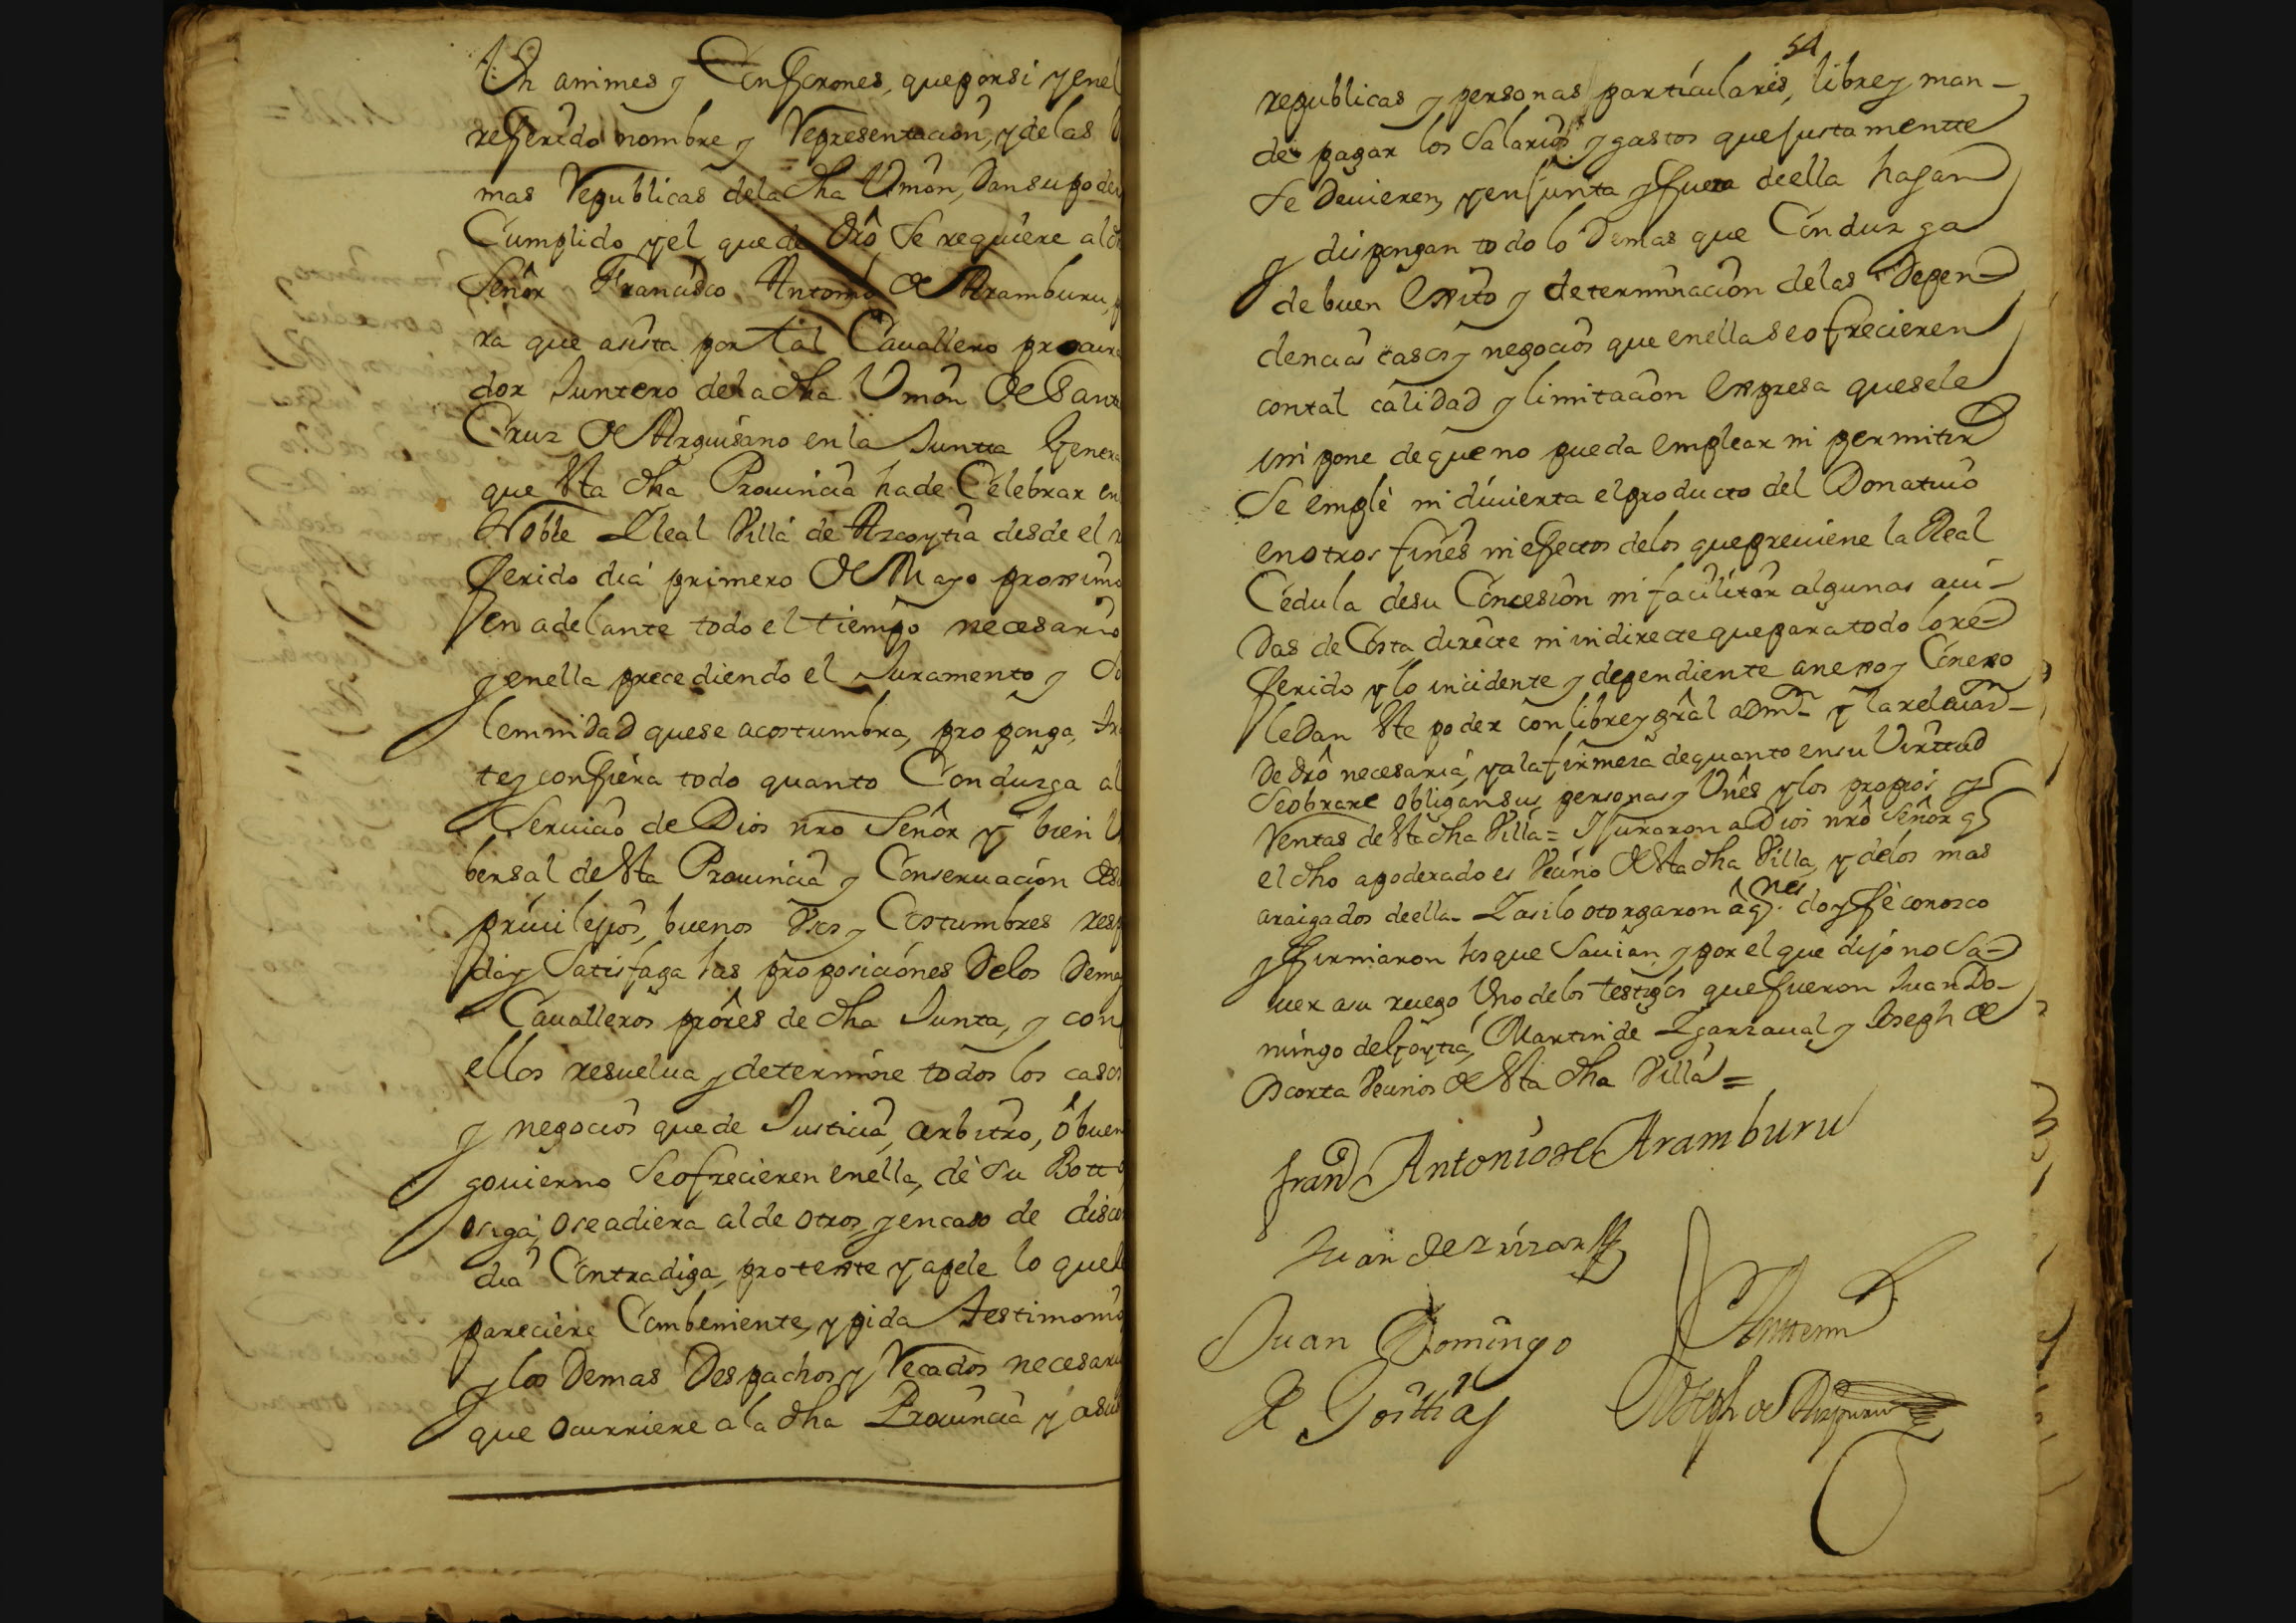 Un animes y Confformes, que por si y en el
refferido nombre y Representacion, y de las
mas Republicas de la dha Union, Dan su poder
Cumplido y el que de Dro Se requiere al
Señor Francisco Antonio de Aramburu,
ra que asista por tal Cauallero procura
dor Juntero de la dha Union de Santa
Cruz de Arguisano en la Juntta Genera
que Esta dha Prouincia ha de Celebrar en
Noble Y Leal Villa de Azcoytia desde el
fferido dia primero de Mayo proximo
en adelante todo el tiempo necesario
y en ella precediendo el Juramento y So
lemnidad que se acostumbra, proponga, tra
te y confiera todo quanto Conduzga al
Seruicio de Dios nro Señor y bien U
bersal de Esta Prouincia y Conseruacion de su
priuilejios, buenos Vsos y Costumbres resp
da y Satisfaga las proposiciones de los Dema
Caualleros prôres de dha Junta, y con
ellos resuelua y determine todos los casos
y negocios que de Justicia, arbitro, ô buen
gouierno Se ofrecieren en ella, dè su Botto
siga, o se adiera al de otros, y en caso de disco
dia Contradiga, proteste y apele lo que le
pareciere Combeniente, y pida testimonio
y los Demas Despachos y Recados necesari
que ocurriere a la dha Prouincia y a sus
54
republicas y personas particulares, libre y man-
de pagar los Salarios y gastos que justamentte
Se Deuieren, y en Junta y ffuera de ella hagan
y dispongan todo lo Demas que Conduzga
de buen Exito y determinacion de las Depen-
dencias casos y negocios que en ella se ofrecieren
con tal calidad y limitacion Expresa que se le
impone de que no pueda emplear ni permitir
Se emplè ni diuierta el producto del Donatiuo
en otros fines ni efectos de los que preuiene la Real
Cedula de su Concesion ni facilitar algunas aui-
Das de Costa directe ni indirecte que para todo lo re-
fferido y lo incidente y dependiente anexo y Conexo
le Dan Este poder con libre y gral admn y la releuan-
De Dro necesaria, y a la firmeza de quanto en su Virttud
Se obrare obligan sus personas y Vnês y los propios y
Rentas de Esta dha Villa = Y juraron a Dios nrô Señor q
el dho apoderado es Vecino de Esta dha Villa, y de los mas
araigados de ella- Y asi lo otorgaron â qnes doy ffè conozco
y ffirmaron los que Sauian, y por el que dijo no Sa-
uer a su ruego Vno de los testigos que ffueron Juan Do-
mingo de Goytia, Martin de Ygarzaual y Joseph de
Ascorta Vecinos de Esta dha Villa =
Franco Antonio de Aramburu
Juan de
Juan Domingo
de Goittia
Antemi
Joseph de